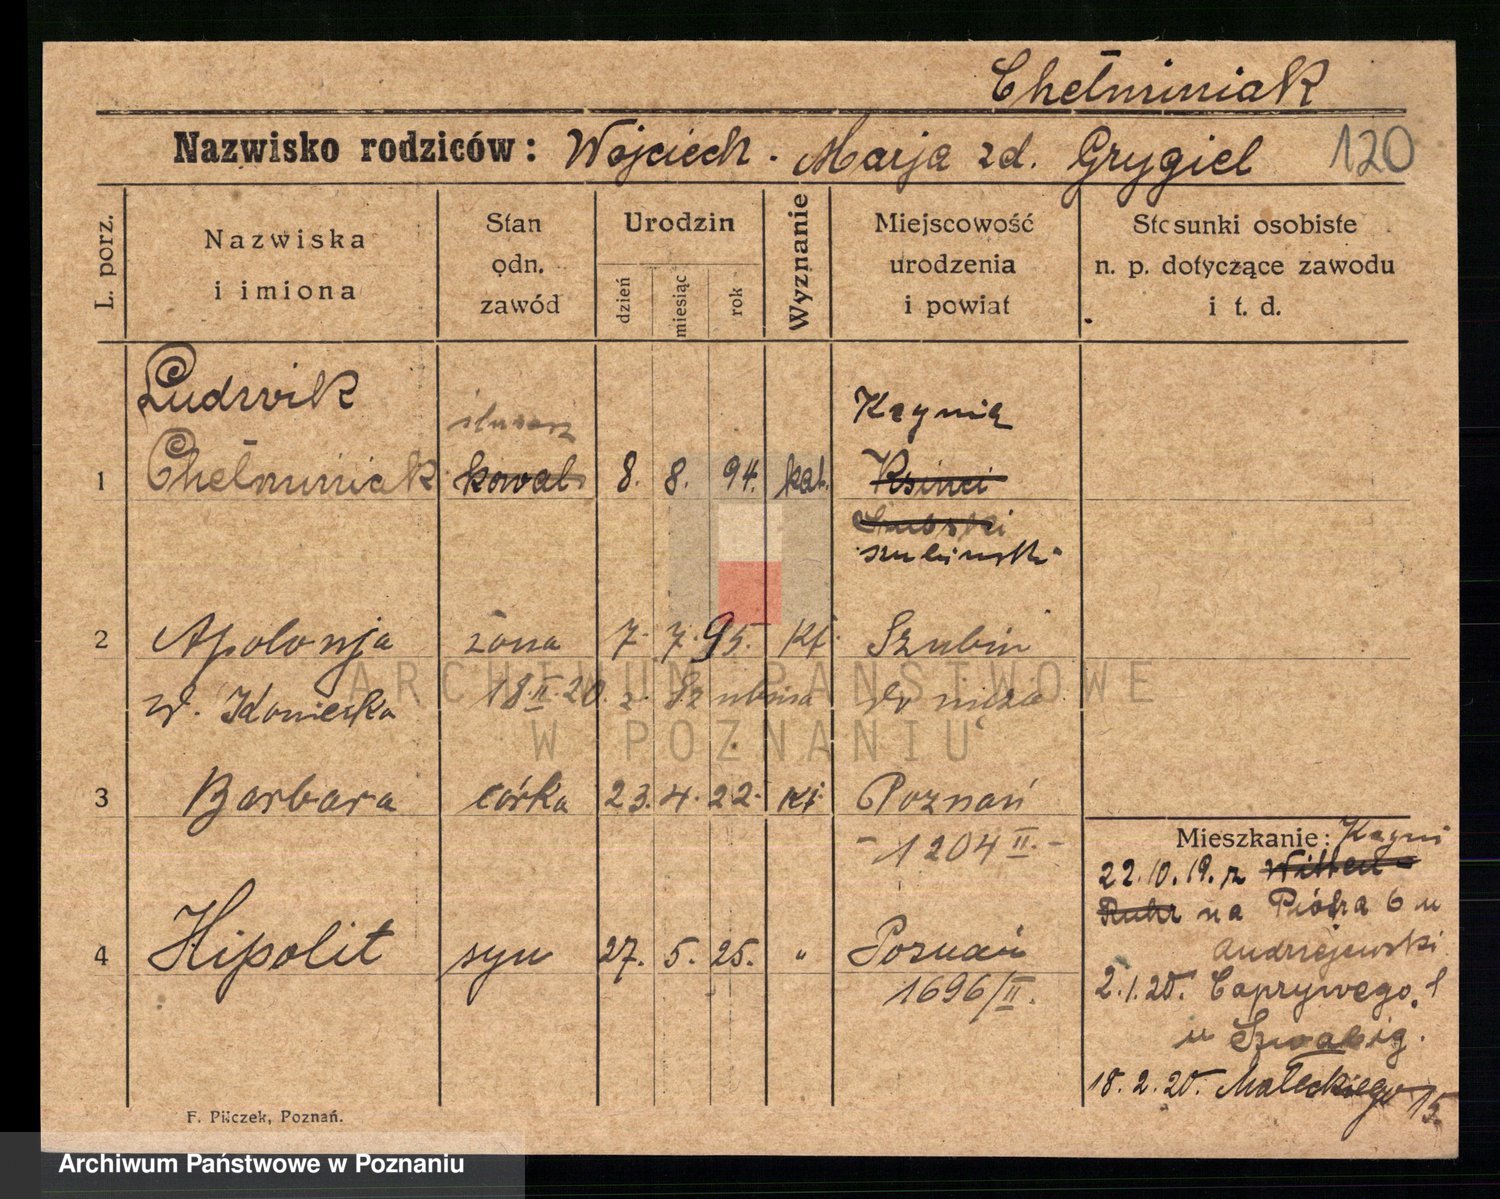 Chełminiak
Nazwisko rodziców: Wojciech. Marja zd. Grygiel 120
L. porz.
Nazwiska
i imiona
Stan
odn.
zawód
Urodzin
dzień
miesiąc
rok
Wyznanie
Miejscowość
urodzenia
i powiat
Stosunki osobiste
n. p. dotyczące zawodu
i t. d.
Ludwik
ślusarz
Kcynia
1 Chełminiak kowal 8. 8. 94. kat. Ksinci
szubiński
2 Apolonja żona 7. 7. 95. kt. Szubin
w. Konieczka 18.II.20. z Szubina
3 Barbara córka 23. 4. 22. kt. Poznań
- 1204 II. -
4 Hipolit syn 27. 5. 25. " Poznań
1696/II.
Mieszkanie: Kcyni
22.10.19. z Witten
Ruhr na Piotra 6 u
Andrzejewski
2.1.20. Caprywego
u
18.2.20. Małeckiego 15
F. Pilczek, Poznań.
ARCHIWUM PAŃSTWOWE
W POZNANIU
Archiwum Państwowe w Poznaniu